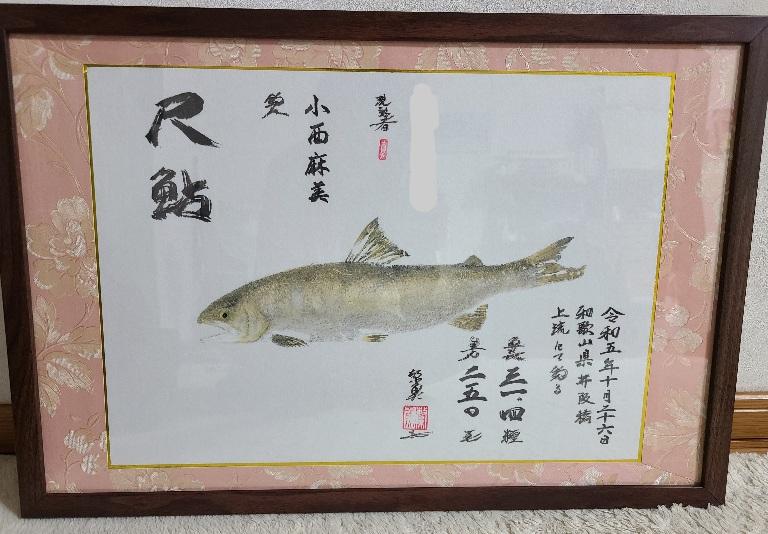 令和五年十月二十六日
和歌山県井阪橋
上流にて釣る
三一.四糎
二五〇
現認者
小西麻美
尺鮎